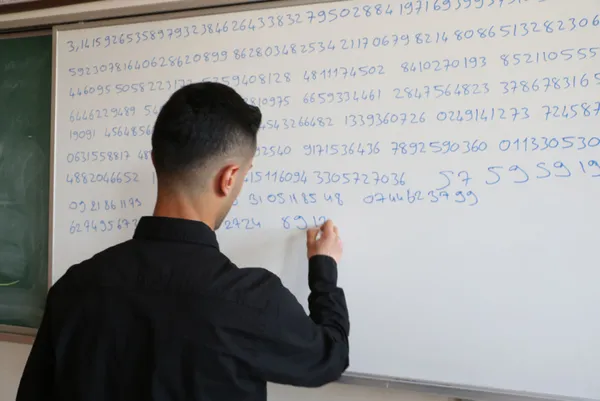 3,141592653589793238462643383279502884197169399
592307816406286208998628034825342117067982148086513282306
4460955058223172 5359408128 4811174502 8410270193 852110555
6446229489 54 10975 6659334461 2847564823 378678316
19091 4564856 4543266482 1339360726 0249141273 724587
0631558817 48 92540 9171536436 7892590360 011330530
4882046652 1 415116094 3305727036 57 59 59 19
09218611793 31 05118548 0744623799
627495673 2724 8912